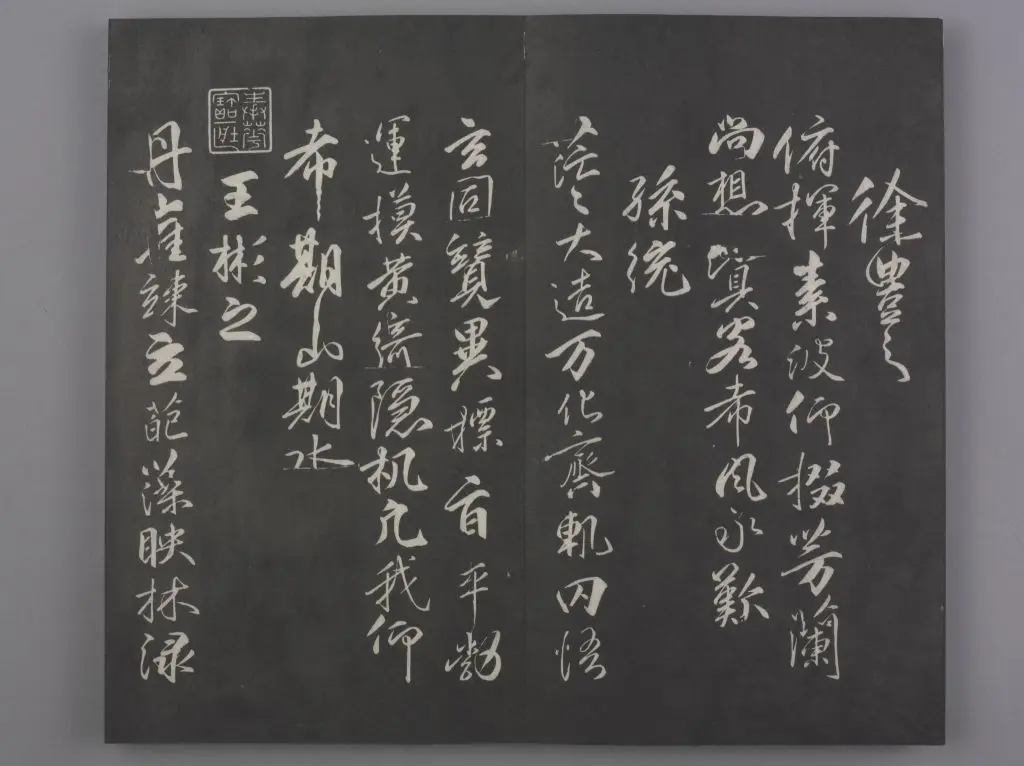 徐豊之
俯揮素波仰掇芳蘭
尚想客希風永歎
孫統
茫々大造万化齊軌罔悟
玄同競異摽旨平勃
運模黄綺隐机凢我仰
希期山期水
王彬之
丹崖竦立葩藻映林渌